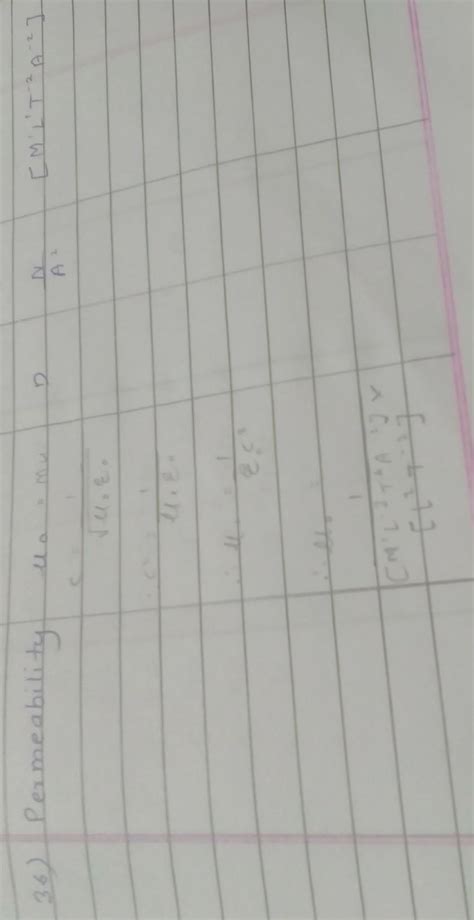 36) Permeability μ₀ = mu D N/A² [M¹L¹T⁻²A⁻²]
c = 1/√μ₀ε₀
∴ c² = 1/μ₀ε₀
∴ μ₀ = 1/ε₀c²
∴ μ₀ = 1/
[M⁻¹L⁻³T⁴A²] ×
[L²T⁻²]